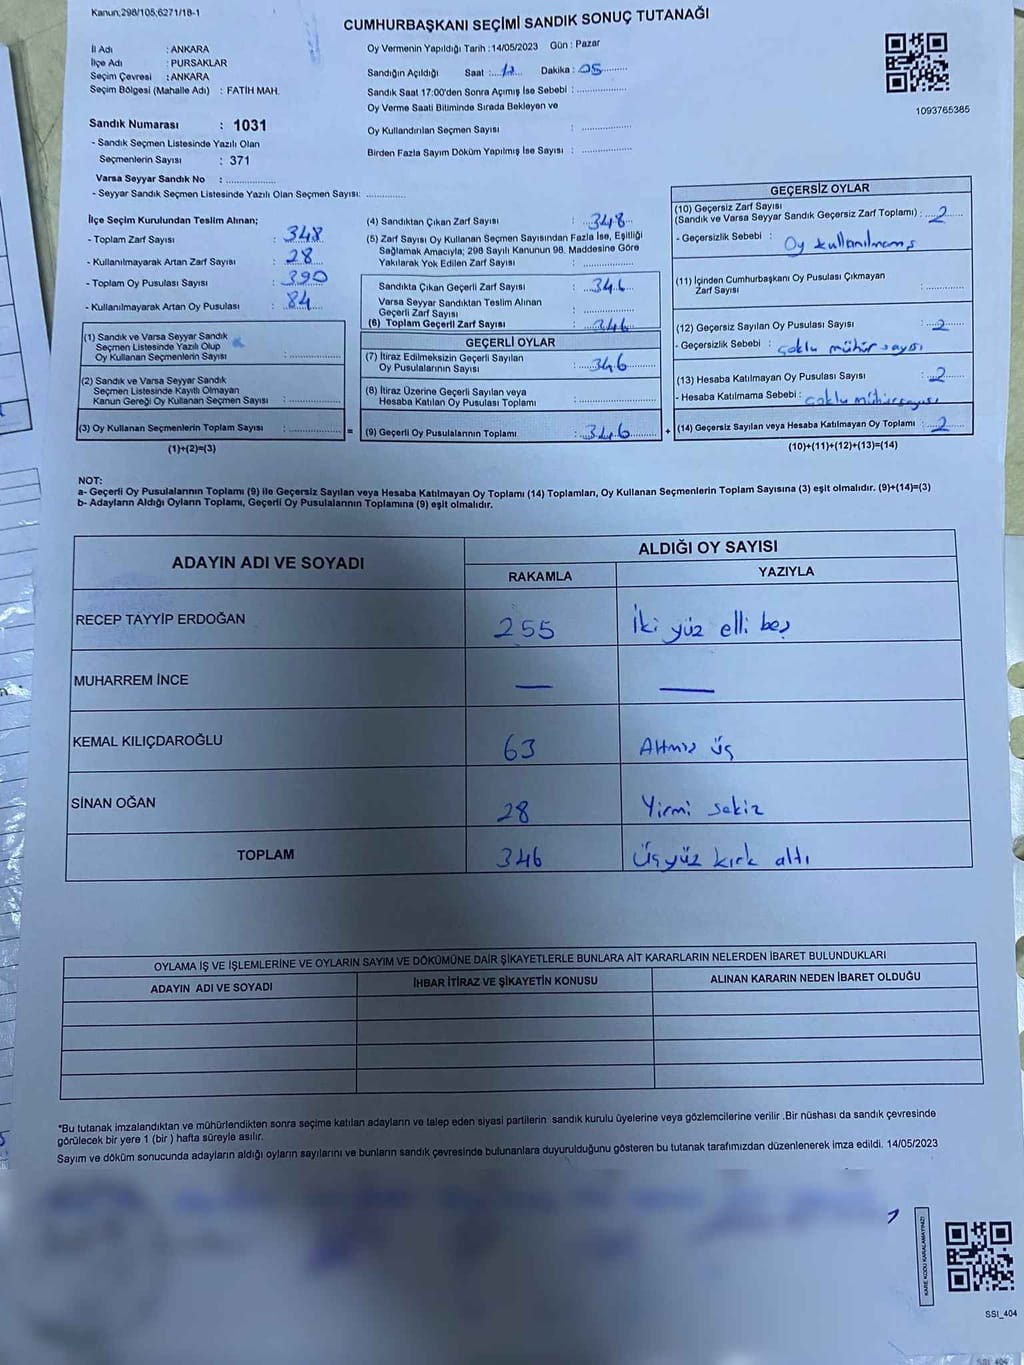 Kanun;298/105;6271/18-1
CUMHURBAŞKANI SEÇİMİ SANDIK SONUÇ TUTANAĞI
İl Adı : ANKARA
İlçe Adı : PURSAKLAR
Seçim Çevresi : ANKARA
Seçim Bölgesi (Mahalle Adı) : FATİH MAH.
Oy Vermenin Yapıldığı Tarih : 14/05/2023 Gün : Pazar
Sandığın Açıldığı Saat : 17 Dakika : 05
Sandık Saat 17:00'den Sonra Açımış İse Sebebi :
Oy Verme Saati Bitiminde Sırada Bekleyen ve
Oy Kullandırılan Seçmen Sayısı :
Birden Fazla Sayım Döküm Yapılmış İse Sayısı :
1093765385
Sandık Numarası : 1031
- Sandık Seçmen Listesinde Yazılı Olan
Seçmenlerin Sayısı : 371
Varsa Seyyar Sandık No :
- Seyyar Sandık Seçmen Listesinde Yazılı Olan Seçmen Sayısı:
İlçe Seçim Kurulundan Teslim Alınan;
- Toplam Zarf Sayısı : 348
- Kullanılmayarak Artan Zarf Sayısı : 28
- Toplam Oy Pusulası Sayısı : 390
- Kullanılmayarak Artan Oy Pusulası : 84
(1) Sandık ve Varsa Seyyar Sandık
Seçmen Listesinde Yazılı Olup
Oy Kullanan Seçmenlerin Sayısı :
(2) Sandık ve Varsa Seyyar Sandık
Seçmen Listesinde Kayıtlı Olmayan
Kanun Gereği Oy Kullanan Seçmen Sayısı :
(3) Oy Kullanan Seçmenlerin Toplam Sayısı : =
(1)+(2)=(3)
(4) Sandıktan Çıkan Zarf Sayısı : 348
(5) Zarf Sayısı Oy Kullanan Seçmen Sayısından Fazla İse, Eşitliği
Sağlamak Amacıyla; 298 Sayılı Kanunun 98. Maddesine Göre
Yakılarak Yok Edilen Zarf Sayısı :
Sandıkta Çıkan Geçerli Zarf Sayısı : 346
Varsa Seyyar Sandıktan Teslim Alınan
Geçerli Zarf Sayısı :
(6) Toplam Geçerli Zarf Sayısı : 346
GEÇERLİ OYLAR
(7) İtiraz Edilmeksizin Geçerli Sayılan
Oy Pusulalarının Sayısı : 346
(8) İtiraz Üzerine Geçerli Sayılan veya
Hesaba Katılan Oy Pusulası Toplamı :
(9) Geçerli Oy Pusulalarının Toplamı : 346 +
GEÇERSİZ OYLAR
(10) Geçersiz Zarf Sayısı
(Sandık ve Varsa Seyyar Sandık Geçersiz Zarf Toplamı) : 2
- Geçersizlik Sebebi : Oy kullanılmamış
(11) İçinden Cumhurbaşkanı Oy Pusulası Çıkmayan
Zarf Sayısı :
(12) Geçersiz Sayılan Oy Pusulası Sayısı : 2
- Geçersizlik Sebebi : çoklu mühür sayısı
(13) Hesaba Katılmayan Oy Pusulası Sayısı : 2
- Hesaba Katılmama Sebebi : çoklu mühür sayısı
(14) Geçersiz Sayılan veya Hesaba Katılmayan Oy Toplamı : 2
(10)+(11)+(12)+(13)=(14)
NOT:
a- Geçerli Oy Pusulalarının Toplamı (9) ile Geçersiz Sayılan veya Hesaba Katılmayan Oy Toplamı (14) Toplamları, Oy Kullanan Seçmenlerin Toplam Sayısına (3) eşit olmalıdır. (9)+(14)=(3)
b- Adayların Aldığı Oyların Toplamı, Geçerli Oy Pusulalarının Toplamına (9) eşit olmalıdır.
ADAYIN ADI VE SOYADI
ALDIĞI OY SAYISI
RAKAMLA YAZIYLA
RECEP TAYYİP ERDOĞAN 255 İki yüz elli beş
MUHARREM İNCE — —
KEMAL KILIÇDAROĞLU 63 Altmış üç
SİNAN OĞAN 28 Yirmi sekiz
TOPLAM 346 Üçyüz kırk altı
OYLAMA İŞ VE İŞLEMLERİNE VE OYLARIN SAYIM VE DÖKÜMÜNE DAİR ŞİKAYETLERLE BUNLARA AİT KARARLARIN NELERDEN İBARET BULUNDUKLARI
ADAYIN ADI VE SOYADI İHBAR İTİRAZ VE ŞİKAYETİN KONUSU ALINAN KARARIN NEDEN İBARET OLDUĞU
*Bu tutanak imzalandıktan ve mühürlendikten sonra seçime katılan adayların ve talep eden siyasi partilerin sandık kurulu üyelerine veya gözlemcilerine verilir .Bir nüshası da sandık çevresinde
görülecek bir yere 1 (bir ) hafta süreyle asılır.
Sayım ve döküm sonucunda adayların aldığı oyların sayılarını ve bunların sandık çevresinde bulunanlara duyurulduğunu gösteren bu tutanak tarafımızdan düzenlenerek imza edildi. 14/05/2023
KARE KODU KARALAMAYINIZ!
SSI_404